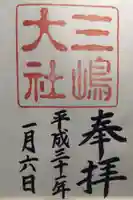 奉拝
三嶋
大社
平成三十一年
一月六日